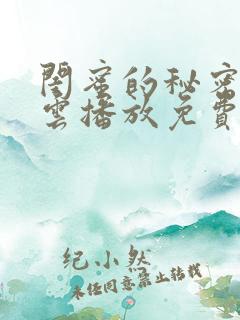 閨蜜的秘密
雲播放免費
纪小然
未经同意禁止转载